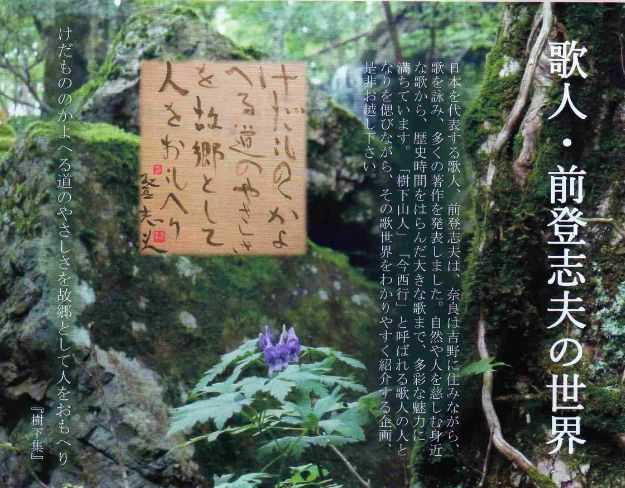 歌人・前登志夫の世界
日本を代表する歌人、前登志夫は、奈良は吉野に住みながら、
歌を詠み、多くの著作を発表しました。自然や人を慈しむ身近
な歌から、歴史時間をはらんだ大きな歌まで、多彩な魅力に
満ちています。「樹下山人」「今西行」と呼ばれる歌人の人と
なりを偲びながら、その歌世界をわかりやすく紹介する企画、
是非お越し下さい。
けだもののかよ
へる道のやさしさ
を故郷として
人をおもへり
登志夫
けだもののかよへる道のやさしさを故郷として人をおもへり
『樹下集』